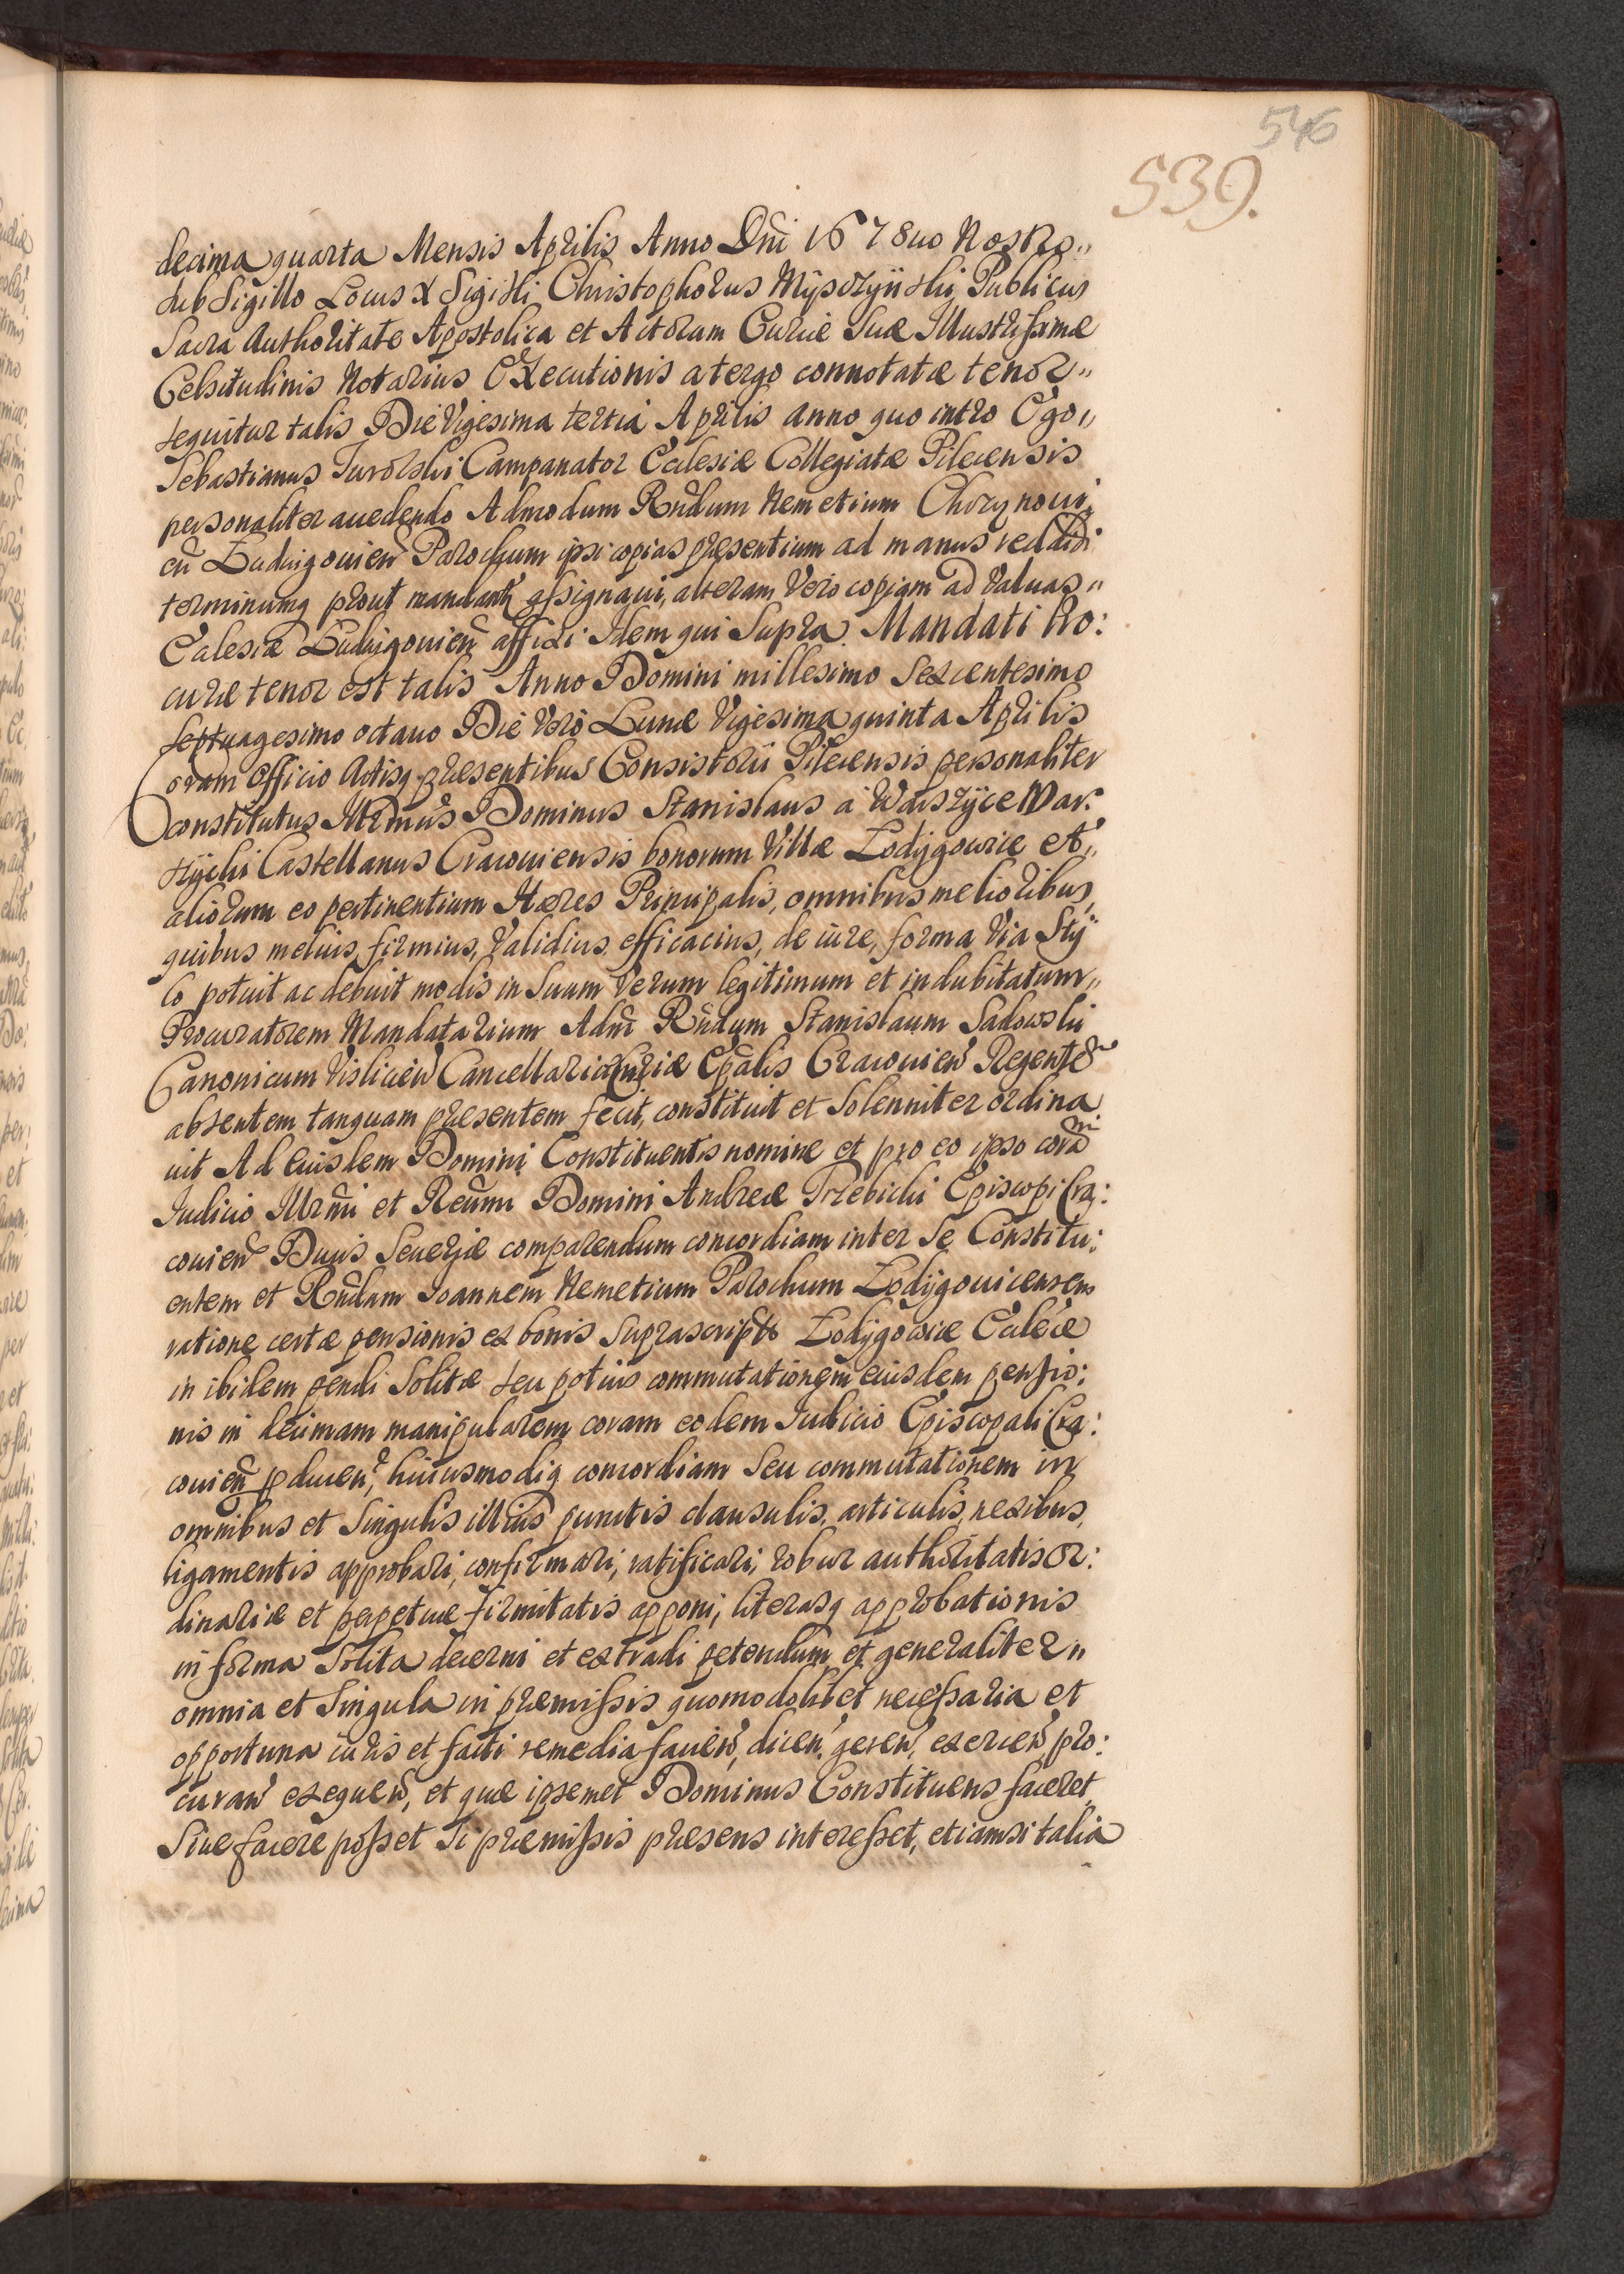 546
539.
decima quarta Mensis Aprilis Anno Dni 1678uo Nostro„
sub Sigillo Locus X Sigilli Christophorus Publicus
Sacra Authoritate Apostolica et Actorum Curiæ Suæ Illustrissimæ
Celsitudinis Notarius Executionis a tergo connotatæ tenor„
sequitur talis Die Vigesima tertia Aprilis anno quo intro Ego„
Sebastianus Campanator Ecclesiæ Collegiatæ Pilecensis
personaliter accedendo Admodum Rndum Nemetium
Parochum ipsi copias præsentium ad manus reddidi
terminumq prout assignaui, alteram Vero copiam ad Valuas„
Ecclesiæ affixi Idem qui Supra Mandati Pro:
curæ tenor est talis Anno Domini millesimo Sexcentesimo
septuagesimo octauo Die Vero Lunæ Vigesima quinta Aprilis
Coram Officio Actisq præsentibus Consistorii Pilecensis personaliter
constitutus Illrmus Dominus Stanislaus a Warszyce War:
szycki Castellanus Cracouiensis bonorum Villæ Lodygowice et„
aliorum eo pertinentium Hæres Principalis, omnibus melioribus,
quibus melius, firmius, Validius, efficacius, de iure, forma Via Sty
lo potuit ac debuit modis in Suum Verum legitimum et indubitatum„
Procuratorem Mandatarium Adm Rndum Stanislaum Sadowski
Canonicum Vislicien Cancellariæ Curiæ Epalis Cracouien Regente
absentem tanquam præsentem fecit, constituit et Solenniter ordina
uit Ad eiusdem Domini Constituentis nomine et pro eo ipso cora
Iudicio Illrmi et Reumi Domini Andreæ Trzebicki Episcopi Cra:
couien Ducis Seueriæ comparendum concordiam inter Se Constitu:
entem et Rndum Joannem Nemetium Parochum Lodygouicensem
ratione certæ pensionis ex bonis Suprascriptis Lodygowice Ecclesiæ
in ibidem pendi Solitæ seu potius commutationem eiusdem pensio:
nis in decimam manipularem coram eodem Iudicio Episcopali Cra:
couien pducen, huiusmodiq concordiam Seu commutationem in
omnibus et Singulis illius punctis clausulis, articulis, nexibus,
ligamentis approbari, confirmari, ratificari, robur authoritatis or:
dinariæ et perpetuæ firmitatis apponi, literasq approbationis
in forma Solita decerni et extradi petendum et generaliter„
omnia et Singula in præmissis quomodolibet necessaria et
opportuna iuris et facti remedia facien, dicen, geren, exercen, pro:
curan exequen, et quæ ipsemet Dominus Constituens faceret,
Siue facere posset Si præmissis præsens interesset, etiamsi talia